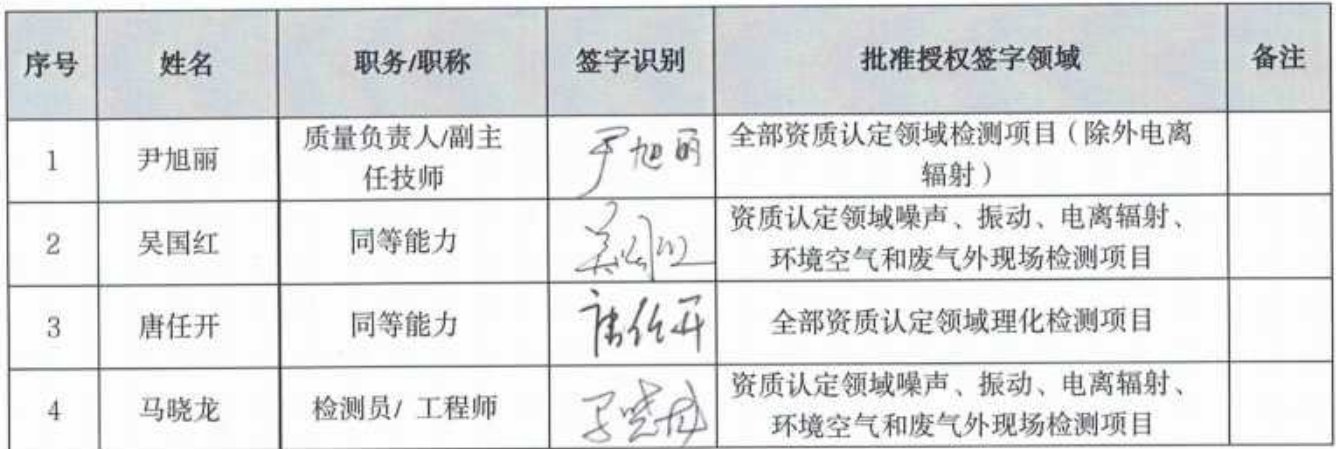 序号 姓名 职务/职称 签字识别 批准授权签字领域 备注
1 尹旭丽 质量负责人/副主 尹旭丽 全部资质认定领域检测项目（除外电离
任技师 辐射）
2 吴国红 同等能力 吴国红 资质认定领域噪声、振动、电离辐射、
环境空气和废气外现场检测项目
3 唐任开 同等能力 唐任开 全部资质认定领域理化检测项目
4 马晓龙 检测员/ 工程师 马晓龙 资质认定领域噪声、振动、电离辐射、
环境空气和废气外现场检测项目